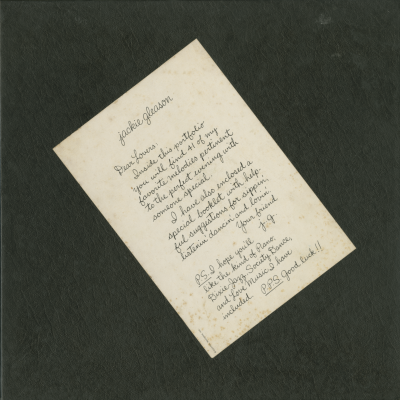 jackie gleason
Dear Lovers:
Inside this portfolio
you will find 41 of my
favorite melodies pertinent
to the perfect evening with
someone special
I have also enclosed a
special booklet with help-
ful suggestions for sippin'
listenin' dancin' and lovin'.
Your friend
J. G.
P.S. I hope you'll
like the kind of Piano,
Dixie, Jazz, Society Dance,
and Love Music I have
included P.P.S. Good luck!!